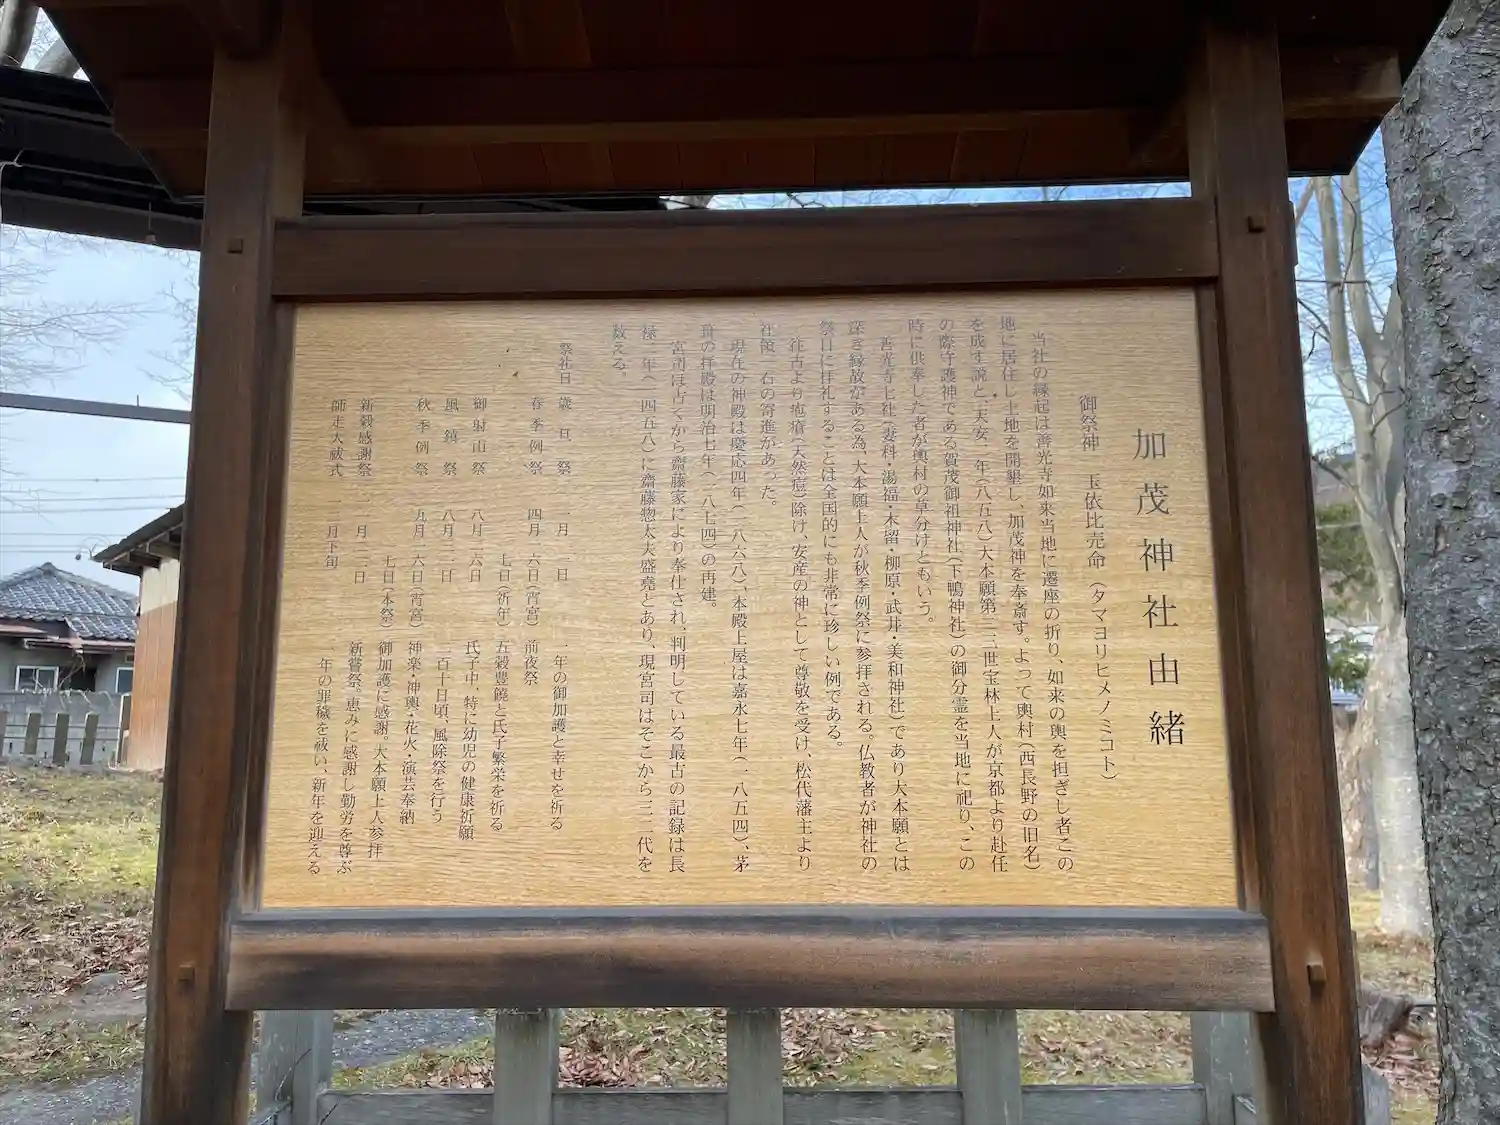 加茂神社由緒
御祭神　玉依比売命（タマヨリヒメノミコト）
当社の縁起は善光寺如来当地に遷座の折り、如来の輿を担ぎし者この
地に居住し土地を開墾し、加茂神を奉斎す。よって輿村（西長野の旧名）
を成す説と、天安二年（八五八）大本願第二三世宝林上人が京都より赴任
の際守護神である賀茂御祖神社（下鴨神社）の御分霊を当地に祀り、この
時に供奉した者が輿村の草分けともいう。
善光寺七社（妻科・湯福・木留・柳原・武井・美和神社）であり大本願とは
深き縁故がある為、大本願上人が秋季例祭に参拝される。仏教者が神社の
祭日に拝礼することは全国的にも非常に珍しい例である。
往古より疱瘡（天然痘）除け、安産の神として尊敬を受け、松代藩主より
社領一石の寄進があった。
現在の神殿は慶応四年（一八六八）、本殿上屋は嘉永七年（一八五四）、茅
葺の拝殿は明治七年（一八七四）の再建。
宮司は古くから齋藤家により奉仕され、判明している最古の記録は長
禄二年（一四五八）に齋藤惣太夫盛堯とあり、現宮司はそこから三二代を
数える。
祭礼日　歳旦祭　一月　一日　一年の御加護と幸せを祈る
春季例祭　四月　六日（宵宮）　前夜祭
七日（祈年）　五穀豊饒と氏子繁栄を祈る
御射山祭　八月二六日　氏子中、特に幼児の健康祈願
風鎮祭　八月　二日　二百十日頃、風除祭を行う
秋季例祭　九月二六日（宵宮）　神楽・神輿・花火・演芸奉納
七日（本祭）　御加護に感謝。大本願上人参拝
新穀感謝祭　二月　二日　新嘗祭。恵みに感謝し勤労を尊ぶ
師走大祓式　二月下旬　一年の罪穢を祓い、新年を迎える